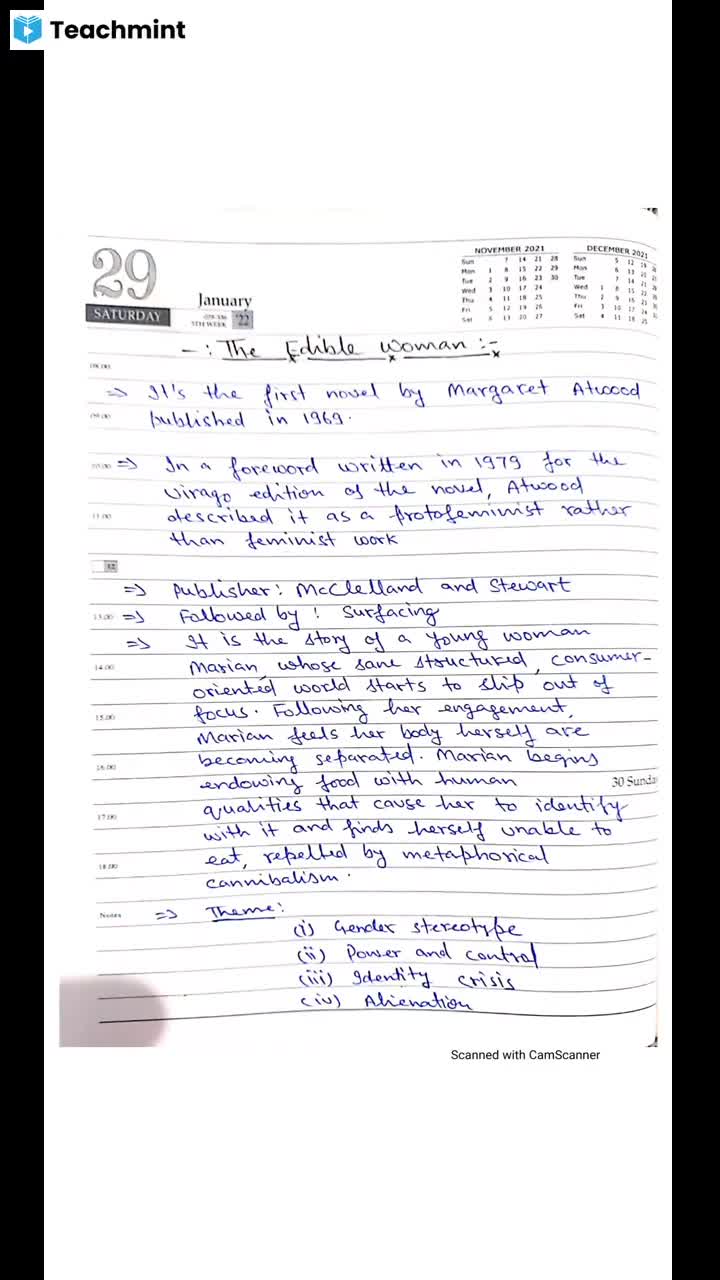 Teachmint
29
SATURDAY
January
5TH WEEK '22
NOVEMBER 2021
Sun 7 14 21 28
Mon 1 8 15 22 29
Tue 2 9 16 23 30
Wed 3 10 17 24
Thu 4 11 18 25
Fri 5 12 19 26
Sat 6 13 20 27
DECEMBER 2021
Sun 5 12 19
Mon 6 13
Tue 7 14
Wed 1 8 15
Thu 2 9 16
Fri 3 10 17
Sat 4 11 18 25
-: The Edible woman :-
08.00
=> It's the first novel by Margaret Atwood
09.00 published in 1969.
=> In a foreword written in 1979 for the
Virago edition of the novel, Atwood
11.00 described it as a protofeminist rather
than feminist work
12
=> Publisher: McClelland and Stewart
13.00 => Followed by : Surfacing
=> It is the story of a young woman
14.00 Marian, whose sane structured, consumer-
oriented world starts to slip out of
15.00 focus. Following her engagement,
Marian feels her body herself are
16.00 becoming separated. Marian begins
endowing food with human 30 Sunda
17.00 qualities that cause her to identify
with it and finds herself unable to
18.00 eat, repelled by metaphorical
cannibalism.
Notes => Theme:
(i) Gender stereotype
(ii) Power and control
(iii) Identity crisis
(iv) Alienation
Scanned with CamScanner